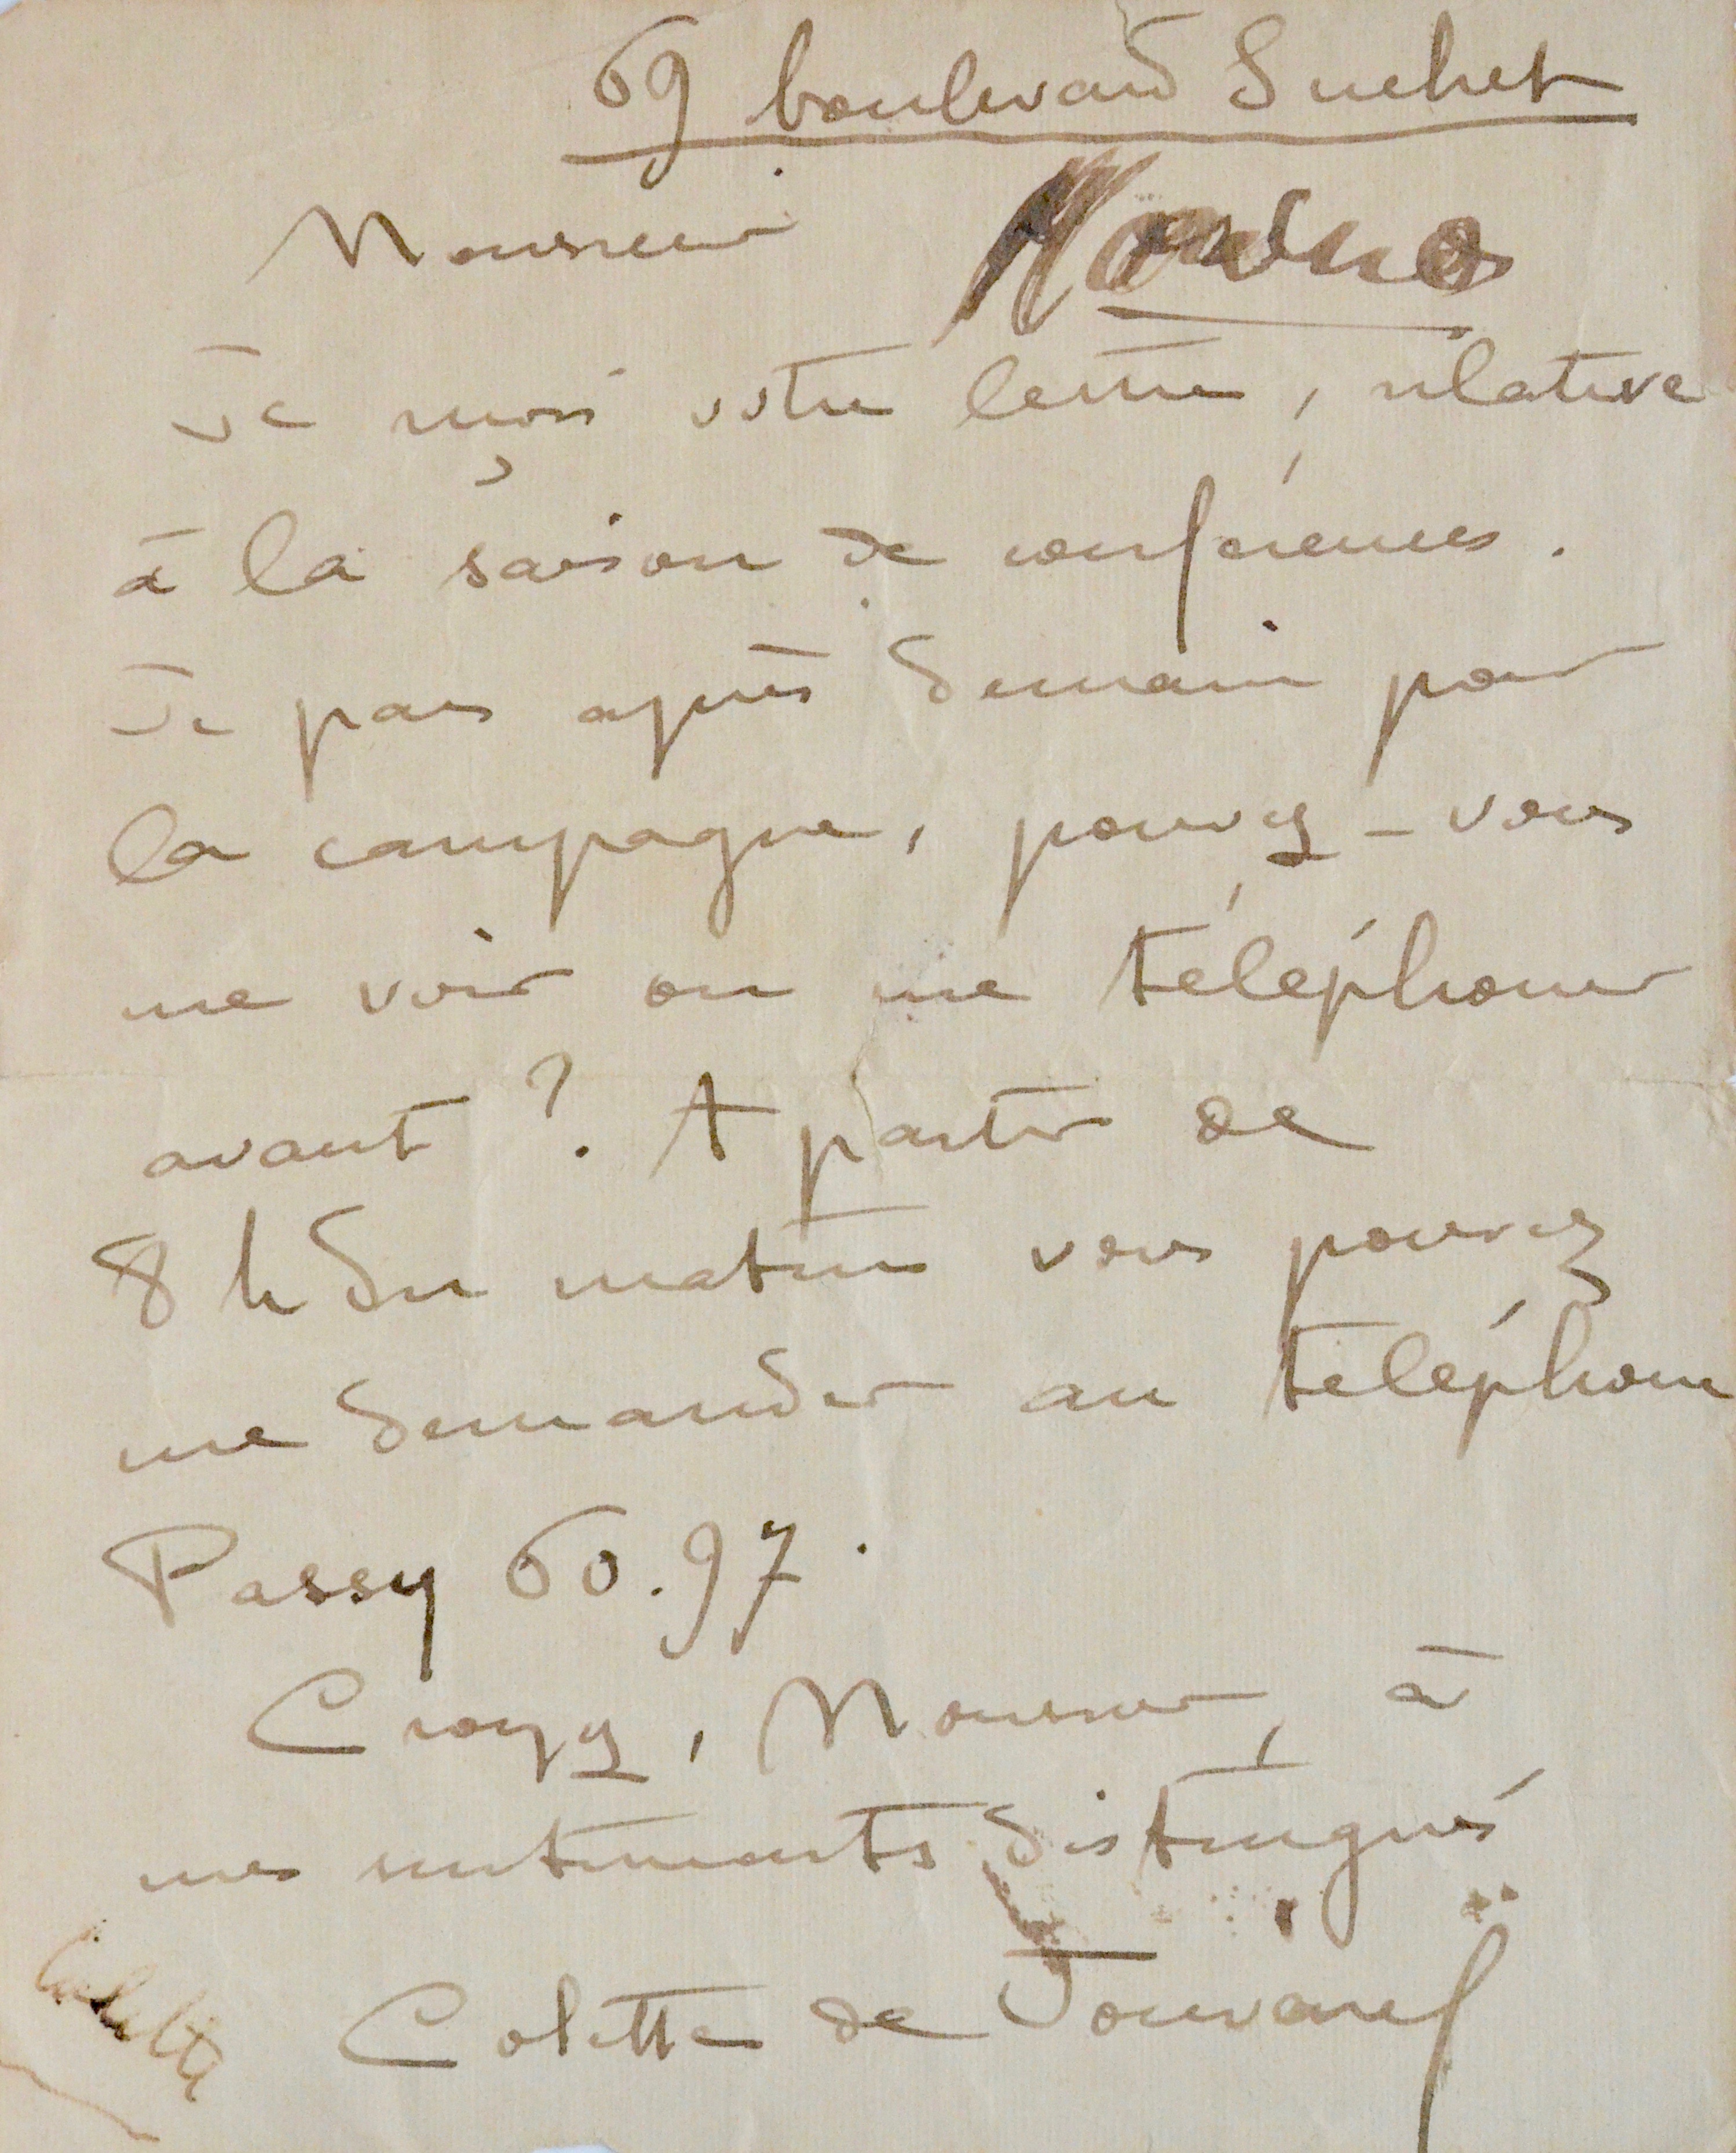 69 boulevard Suchet
Monsieur
Je reçois votre lettre, relative
à la saison de conférences.
Je pars après demain pour
la campagne, pouvez-vous
me voir ou me téléphoner
avant ? A partir de
8 h du matin vous pouvez
me demander au téléphone
Passy 60.97.
Croyez, Monsieur, à
mes sentiments distingués
Colette de Jouvenel
Colette